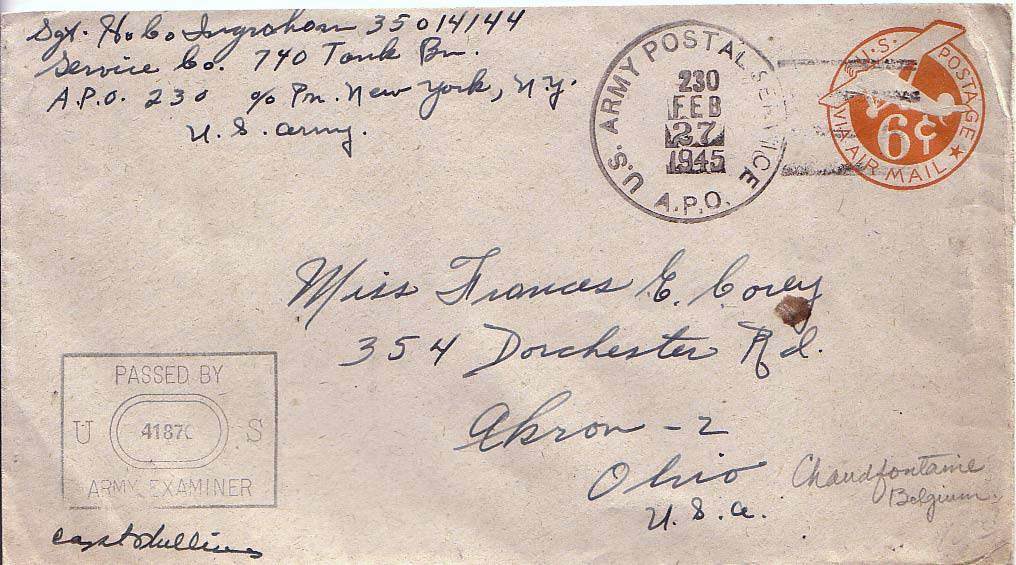 Sgt. H. C. Ingraham 35014144
Service Co. 740 Tank Bn.
A.P.O. 230 c/o Pm. New York, N.Y.
U.S. Army.
U.S. ARMY POSTAL SERVICE
230
FEB
27
1945
A.P.O.
U.S. POSTAGE
6¢
VIA AIR MAIL
Miss Frances E. Corey
354 Dorchester Rd.
Akron - 2
Ohio
U.S.A.
Chaudfontaine
Belgium.
PASSED BY
U 41870 S
ARMY EXAMINER
Capt